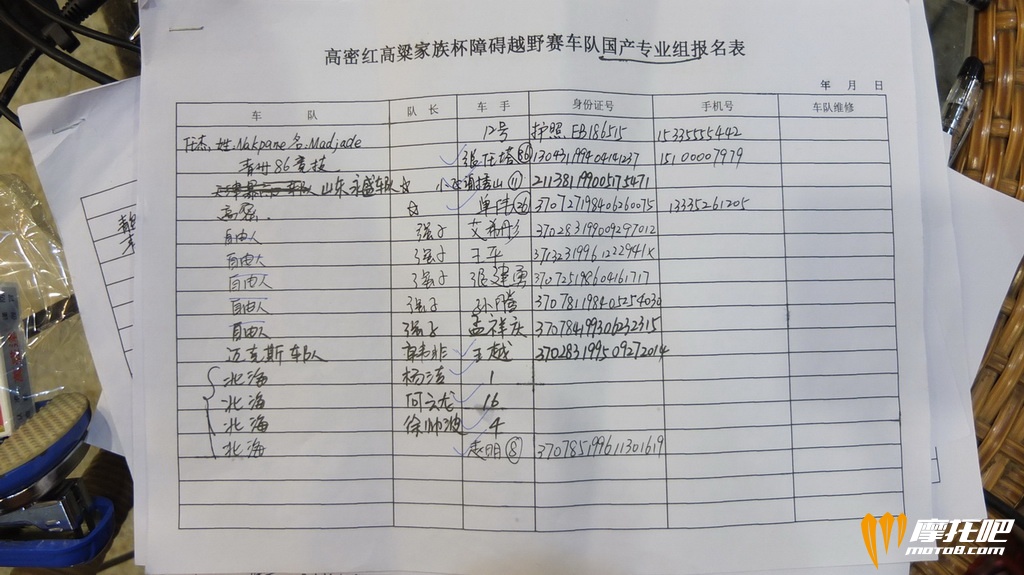 高密红高粱家族杯障碍越野赛车队国产专业组报名表
年 月 日
车 队 队 长 车 手 身份证号 手机号 车队维修
任杰 姓 Nakpane 名 Madjade 12号 护照 EB186515 15335555442
青州86竞技 张任塔 86 130431199404141237 15100007979
山东永盛车队 11 211381199005175471
高密 单伟 26 370727198406260075 13335261205
自由人 强子 艾希彤 370283199009297012
自由人 强子 王平 37132319961222941X
自由人 强子 张建勇 370725198604161717
自由人 强子 孙腾 370781198405254030
自由人 强子 孟祥庆 370784199306232315
迈克斯车队 王越 370283199509272014
北海 杨涛 1
北海 何云龙 16
北海 徐帅波 4
北海 赵明 8 370785199611301619
摩托吧
moto8.com